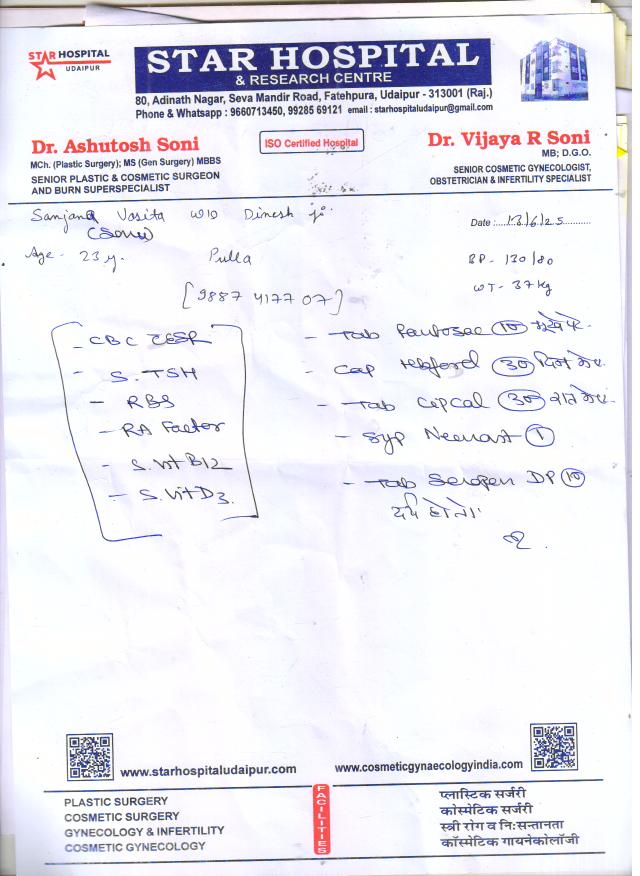 STAR HOSPITAL
UDAIPUR
STAR HOSPITAL
& RESEARCH CENTRE
80, Adinath Nagar, Seva Mandir Road, Fatehpura, Udaipur - 313001 (Raj.)
Phone & Whatsapp : 9660713450, 99285 69121 email : starhospitaludaipur@gmail.com
Dr. Ashutosh Soni
MCh. (Plastic Surgery); MS (Gen Surgery) MBBS
SENIOR PLASTIC & COSMETIC SURGEON
AND BURN SUPERSPECIALIST
ISO Certified Hospital
Dr. Vijaya R Soni
MB; D.G.O.
SENIOR COSMETIC GYNECOLOGIST,
OBSTETRICIAN & INFERTILITY SPECIALIST
Sanjana Vasita W/O Dinesh ji
Date :....13/6/25............
Age - 23 y. Pulla
BP - 130/80
WT - 37 kg
[9887 4177 07]
- CBC ESR
- S. TSH
- RBS
- RA Factor
- S. Vit B12
- S. Vit D3.
- Tab Pantosec 10
- Cap 30 दिन में
- Tab Cepcal 30 रात में
- Syp 1
- Tab DP 10
दर्द हो तो
www.starhospitaludaipur.com
www.cosmeticgynaecologyindia.com
PLASTIC SURGERY
COSMETIC SURGERY
GYNECOLOGY & INFERTILITY
COSMETIC GYNECOLOGY
FACILITIES
प्लास्टिक सर्जरी
कोस्मेटिक सर्जरी
स्त्री रोग व नि:सन्तानता
कॉस्मेटिक गायनेकोलॉजी